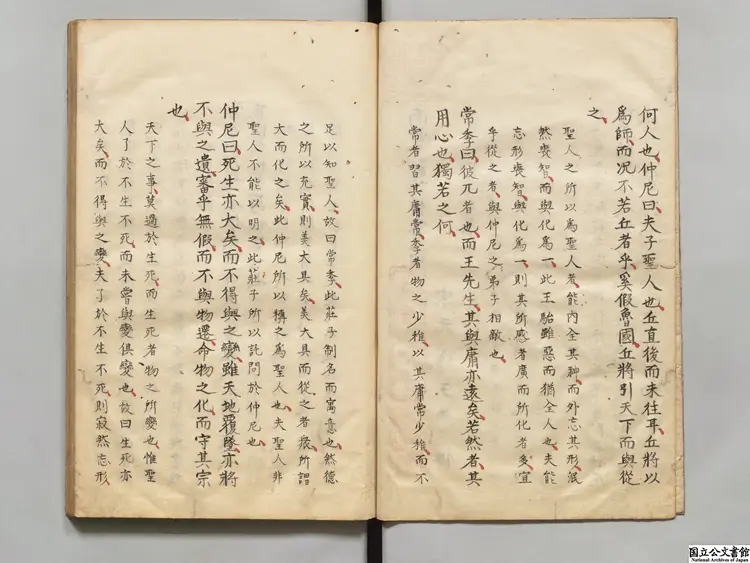 何人也仲尼曰夫子聖人也丘直後而未往耳丘將以
爲師而況不若丘者乎奚假魯國丘將引天下而與從
之
聖人之所以爲聖人者能內全其神而外忘其形泯
然喪智而與化爲一此王駘雖惡而猶全人也夫能
忘形喪智與化爲一則其所感者廣而所化者多宜
乎從之者與仲尼之弟子相敵也
常季曰彼兀者也而王先生其與庸亦遠矣若然者其
用心也獨若之何
常者習其庸常季者物之少稚以其庸常少稚而不
足以知聖人故曰常季此莊子制名而寓意也然德
之所以充實則美大具矣美大具而從之者衆所謂
大而化之矣此仲尼所以稱之爲聖人也夫聖人非
聖人不能以明之此莊子所以託問於仲尼也
仲尼曰死生亦大矣而不得與之變雖天地覆墜亦將
不與之遺審乎無假而不與物遷命物之化而守其宗
也
天下之事莫過於生死而生死者物之所變也惟聖
人了於不生不死而未嘗與變俱變也故曰生死亦
大矣而不得與之變夫了於不生不死則寂然忘形
国立公文書館
National Archives of Japan